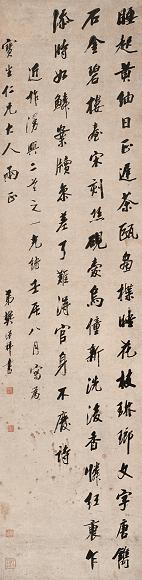 睡起黃紬日正遲茶甌晶檠映花枝琳瑯文字唐鐫
石金碧樓臺宋刻絲硯蓋烏僮新洗後香憐紅裏乍
添時如鱗案牘參差了難得官身不廢詩
近作漫興二首之一光緒壬辰八月寫為
寶生仁兄大人兩正
弟樊增祥書